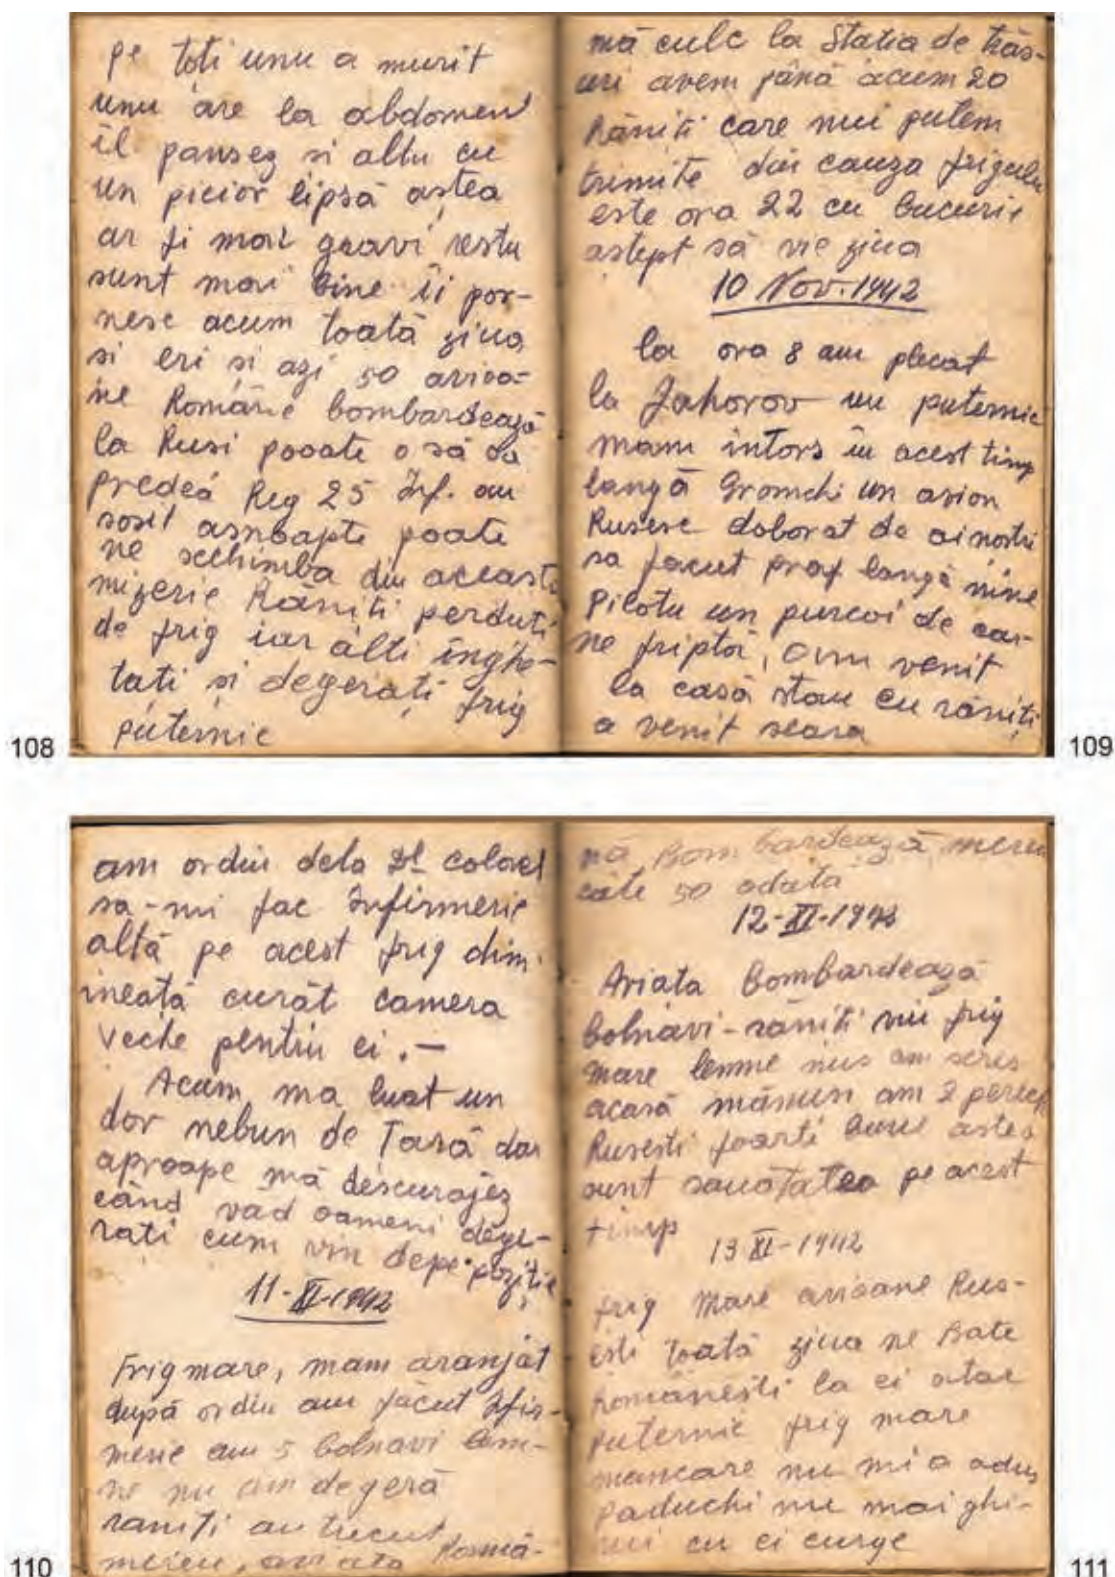 pe toti unu a murit
unu are la abdomen
il pansez si altu cu
un picior lipsă aștea
ar fi mai gravi restu
sunt mai bine îi por-
nesc acum toată ziua
si eri și azi 50 avioa-
ne Române bombardează
la Rusi pooate o să să
predea Reg 25 Inf. au
sosit asnoapte poate
ne schimba din aceast
mizerie Răniți perduti
de frig iar alti înghe-
tati și degerați frig
puternic
108
mă culc la Statia de trăs-
uri avem până acum 20
Răniti care nui putem
trimite din cauza frigului
este ora 22 cu bucurie
astept să vie ziua
10 Nov. 1942
la ora 8 am plecat
la Jahorov un puternic
mam intors in acest timp
langă Gromchi un avion
Rusesc doborat de ai nostri
sa facut praf langă mine
Pilotu un purcoi de car-
ne friptoi, am venit
la casă stau cu răniți
a venit seara
109
am ordin dela Dl colonel
sa-mi fac Infirmerie
altă pe acest frig dim-
ineată curăt camera
veche pentru ei . —
Acum, ma luat un
dor nebun de Tară dar
aproape mă descurajez
când văd oameni dege-
rati cum vin depe poziție
11-XI-1942
Frig mare, mam aranjat
după ordin am făcut Ifir-
merie am 5 bolnavi lem-
ne nu am degeră
raniti au trecut
mereu, Româ-
110
nă Bombardează mereu
cate 50 odata
12-XI-1942
Aviata Bombardează
bolnavi-răniti vin frig
mare lemne nus am scris
acasă mănuși am 2 perechi
Rusesti foarti bune astea
sunt sanatatea pe acest
timp
13 XI-1942
frig mare avioane Rus-
esti toată ziua ne Bate
Românesti la ei atac
puternic frig mare
mancare nu mi a adus
paduchi nu mai
cu ei curge
111